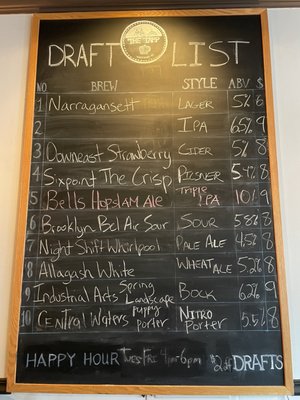 DRAFT LIST
NO BREW STYLE ABV $
1 Narragansett LAGER 5% 6
2 IPA 6.5% 9
3 Downeast Strawberry CIDER 5% 8
4 Sixpoint The Crisp PILSNER 5.4% 8
5 Bells Hopslam Ale TRIPLE IPA 10% 9
6 Brooklyn Bel Air Sour SOUR 5.8% 8
7 Night Shift Whirlpool PALE ALE 4.5% 8
8 Allagash White WHEAT ALE 5.2% 8
9 Industrial Arts Spring Landscape BOCK 6.2% 9
10 Central Waters Puppy Porter NITRO PORTER 5.5% 8
HAPPY HOUR Tues-Fri 4pm-6pm $2 off DRAFTS